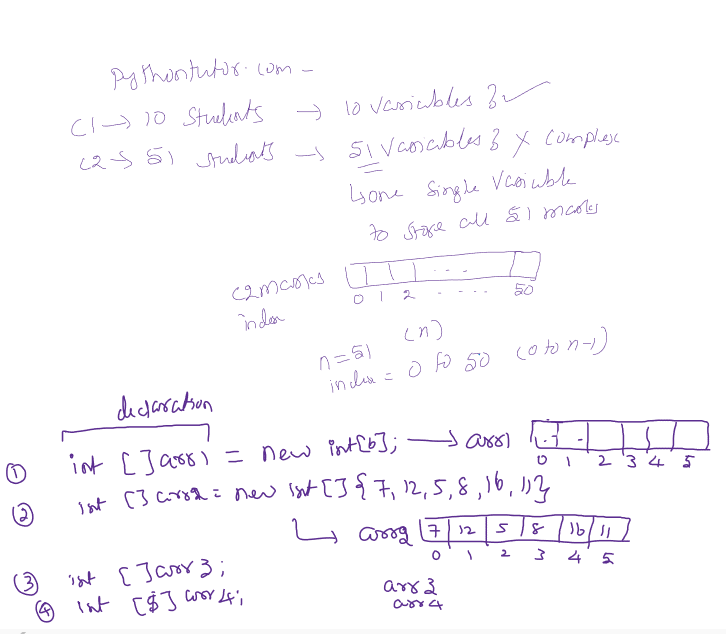 Pythontutor.com -
C1 → 10 Students → 10 Variables } ✓
C2 → 51 students → 51 Variables } x Complex
↳ one Single Variable
to store all 51 marks
C2marks - - -
0 1 2 - - - - 50
index
n = 51 (n)
index = 0 to 50 (0 to n-1)
declaration
① int []arr1 = new int[6]; → arr1
0 1 2 3 4 5
② int [] arr2 = new int []{ 7, 12, 5, 8, 16, 11}
↳ arr2 7 12 5 8 16 11
0 1 2 3 4 5
③ int []arr3;
arr3
④ int [$] arr4;
arr4